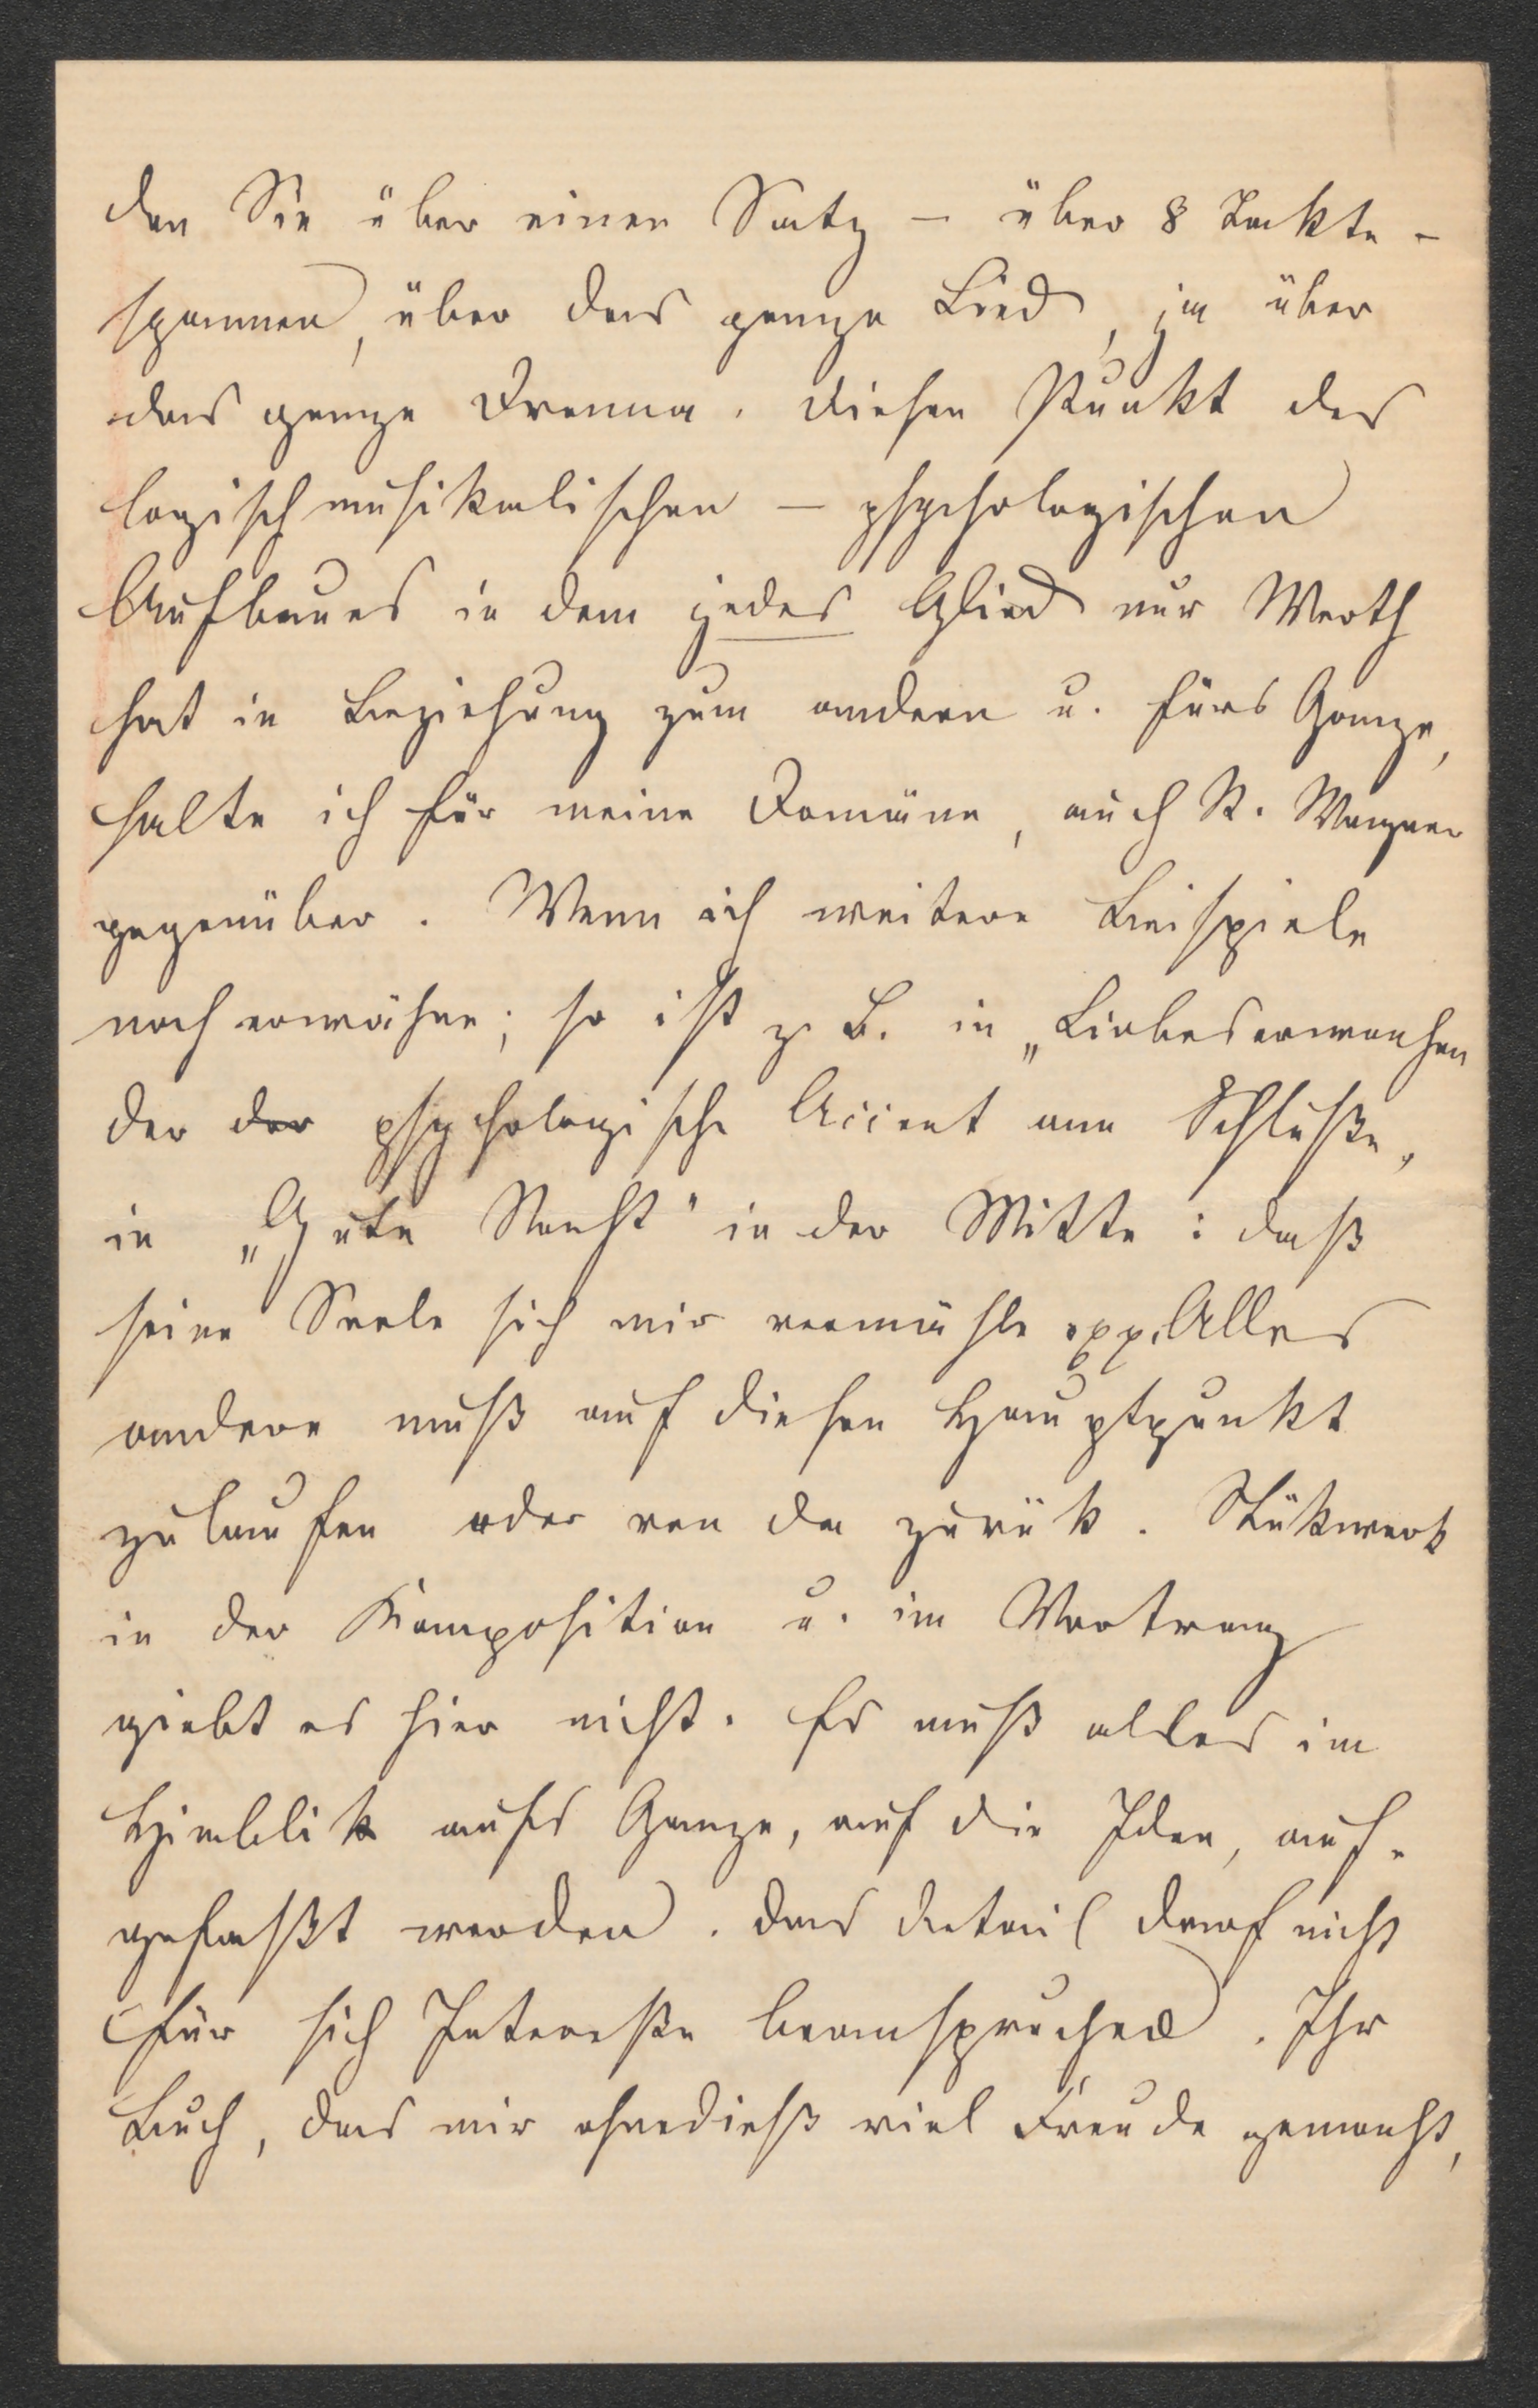 den Sie über einen Satz – über 8 Takte –
spannen, über das ganze Lied, ja über
das ganze Drama. Diesen Punkt des
logisch musikalischen – psychologischen
Aufbaues in dem jedes Glied nur Werth
hat in Beziehung zum andern u. fürs Ganze,
halte ich für meine Domäne, auch R. Wagner
gegenüber. Wenn ich weitere Beispiele
noch erwähne; so ist z B. in „Liebeserwachen
der der psychologische Accent am Schluße,
in „Gute Nacht" in der Mitte: daß
seine Seele sich mir vermähle opp. Alles
andere muß auf diesen Hauptpunkt
zulaufen oder von da zurük. Stükwerk
in der Komposition u. im Vortrag
giebt es hier nicht. Es muß alles im
Hinblik aufs Ganze, auf die Idee, auf-
gefaßt werden. Das Detail darf nicht
für sich Intereße beanspruchen. Ihr
Buch, das mir ohnedieß viel Freude gemacht,